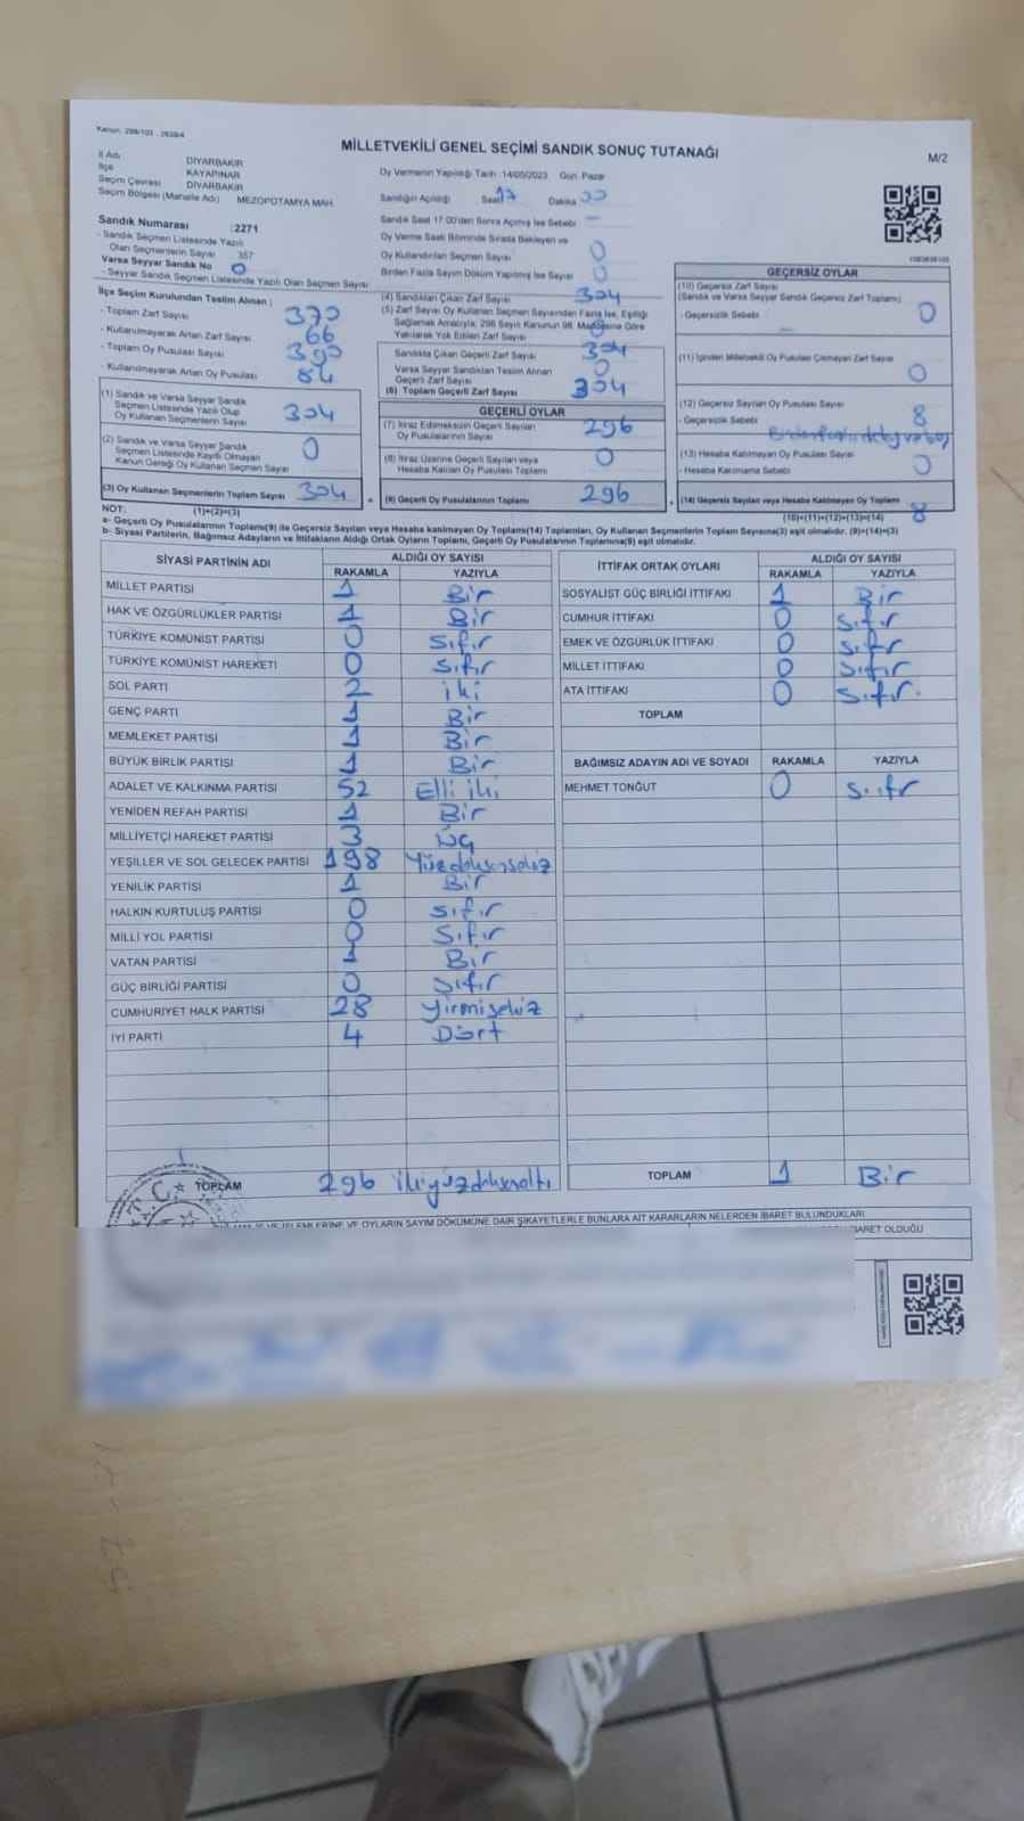 Kanun: 298/103 - 2839/4
MİLLETVEKİLİ GENEL SEÇİMİ SANDIK SONUÇ TUTANAĞI
M/2
İl Adı DİYARBAKIR
İlçe KAYAPINAR
Seçim Çevresi DİYARBAKIR
Seçim Bölgesi (Mahalle Adı) MEZOPOTAMYA MAH.
Oy Vermenin Yapıldığı Tarih :14/05/2023 Gün: Pazar
Sandığın Açıldığı Saat 17 Dakika
Sandık Saat 17.00'den Sonra Açılmış İse Sebebi
Oy Verme Saati Bitiminde Sırada Bekleyen ve
Oy Kullandırılan Seçmen Sayısı 0
Birden Fazla Sayım Döküm Yapılmış İse Sayısı 0
Sandık Numarası :2271
- Sandık Seçmen Listesinde Yazılı
Olan Seçmenlerin Sayısı 357
Varsa Seyyar Sandık No 0
- Seyyar Sandık Seçmen Listesinde Yazılı Olan Seçmen Sayısı
İlçe Seçim Kurulundan Teslim Alınan ;
- Toplam Zarf Sayısı 370
- Kullanılmayarak Artan Zarf Sayısı 66
- Toplam Oy Pusulası Sayısı 390
- Kullanılmayarak Artan Oy Pusulası 84
(1) Sandık ve Varsa Seyyar Sandık
Seçmen Listesinde Yazılı Olup
Oy Kullanan Seçmenlerin Sayısı 304
(2) Sandık ve Varsa Seyyar Sandık
Seçmen Listesinde Kaydı Olmayan
Kanun Gereği Oy Kullanan Seçmen Sayısı 0
(3) Oy Kullanan Seçmenlerin Toplam Sayısı 304
(1)+(2)=(3)
(4) Sandıktan Çıkan Zarf Sayısı 304
(5) Zarf Sayısı Oy Kullanan Seçmen Sayısından Fazla İse, Eşitliği
Sağlamak Amacıyla, 298 Sayılı Kanunun 98. Maddesine Göre
Yakılarak Yok Edilen Zarf Sayısı 0
Sandıkta Çıkan Geçerli Zarf Sayısı 304
Varsa Seyyar Sandıktan Teslim Alınan
Geçerli Zarf Sayısı 0
(6) Toplam Geçerli Zarf Sayısı 304
GEÇERLİ OYLAR
(7) İtiraz Edilmeksizin Geçerli Sayılan
Oy Pusulalarının Sayısı 296
(8) İtiraz Üzerine Geçerli Sayılan veya
Hesaba Katılan Oy Pusulası Toplamı 0
(9) Geçerli Oy Pusulalarının Toplamı 296
GEÇERSİZ OYLAR
(10) Geçersiz Zarf Sayısı
(Sandık ve Varsa Seyyar Sandık Geçersiz Zarf Toplamı)
- Geçersizlik Sebebi 0
(11) İçinden Milletvekili Oy Pusulası Çıkmayan Zarf Sayısı 0
(12) Geçersiz Sayılan Oy Pusulası Sayısı 8
- Geçersizlik Sebebi
(13) Hesaba Katılmayan Oy Pusulası Sayısı 0
- Hesaba Katılmama Sebebi
(14) Geçersiz Sayılan veya Hesaba Katılmayan Oy Toplamı 8
(10)+(11)+(12)+(13)=(14)
NOT:
a- Geçerli Oy Pusulalarının Toplamı(9) ile Geçersiz Sayılan veya Hesaba katılmayan Oy Toplamı(14) Toplamları, Oy Kullanan Seçmenlerin Toplam Sayısına(3) eşit olmalıdır. (9)+(14)=(3)
b- Siyasi Partilerin, Bağımsız Adayların ve İttifakların Aldığı Ortak Oyların Toplamı, Geçerli Oy Pusulalarının Toplamına(9) eşit olmalıdır.
SİYASİ PARTİNİN ADI ALDIĞI OY SAYISI
RAKAMLA YAZIYLA
MİLLET PARTİSİ 1 Bir
HAK VE ÖZGÜRLÜKLER PARTİSİ 1 Bir
TÜRKİYE KOMÜNİST PARTİSİ 0 Sıfır
TÜRKİYE KOMÜNİST HAREKETİ 0 Sıfır
SOL PARTİ 2 iki
GENÇ PARTİ 1 Bir
MEMLEKET PARTİSİ 1 Bir
BÜYÜK BİRLİK PARTİSİ 1 Bir
ADALET VE KALKINMA PARTİSİ 52 Elli iki
YENİDEN REFAH PARTİSİ 1 Bir
MİLLİYETÇİ HAREKET PARTİSİ 3 Üç
YEŞİLLER VE SOL GELECEK PARTİSİ 198 Yüzdoksansekiz
YENİLİK PARTİSİ 1 Bir
HALKIN KURTULUŞ PARTİSİ 0 Sıfır
MİLLİ YOL PARTİSİ 0 Sıfır
VATAN PARTİSİ 1 Bir
GÜÇ BİRLİĞİ PARTİSİ 0 Sıfır
CUMHURİYET HALK PARTİSİ 28 Yirmisekiz
İYİ PARTİ 4 Dört
TOPLAM 296 ikiyüzdoksanaltı
İTTİFAK ORTAK OYLARI ALDIĞI OY SAYISI
RAKAMLA YAZIYLA
SOSYALİST GÜÇ BİRLİĞİ İTTİFAKI 1 Bir
CUMHUR İTTİFAKI 0 Sıfır
EMEK VE ÖZGÜRLÜK İTTİFAKI 0 Sıfır
MİLLET İTTİFAKI 0 Sıfır
ATA İTTİFAKI 0 Sıfır
TOPLAM
BAĞIMSIZ ADAYIN ADI VE SOYADI RAKAMLA YAZIYLA
MEHMET TONĞUT 0 Sıfır
TOPLAM 1 Bir
T.C.
VE OYLARIN SAYIM DÖKÜMÜNE DAİR ŞİKAYETLERLE BUNLARA AİT KARARLARIN NELERDEN İBARET BULUNDUKLARI
İBARET OLDUĞU